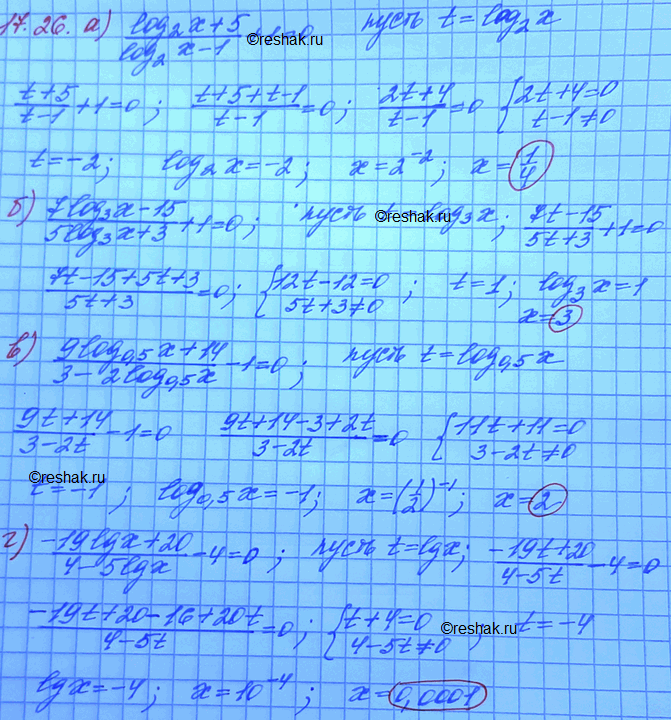 17.26. а) (log₂x+5)/(log₂x-1)+1=0 пусть t=log₂x
©reshak.ru
(t+5)/(t-1)+1=0; (t+5+t-1)/(t-1)=0; (2t+4)/(t-1)=0 {2t+4=0 t-1≠0
t=-2; log₂x=-2; x=2⁻²; x=1/4
б) (7log₃x-15)/(5log₃x+3)+1=0; пусть t=log₃x; (7t-15)/(5t+3)+1=0
©reshak.ru
(7t-15+5t+3)/(5t+3)=0; {12t-12=0 5t+3≠0; t=1; log₃x=1
x=3
в) (9log₀,₅x+14)/(3-2log₀,₅x)-1=0; пусть t=log₀,₅x
(9t+14)/(3-2t)-1=0 (9t+14-3+2t)/(3-2t)=0 {11t+11=0 3-2t≠0
©reshak.ru
t=-1; log₀,₅x=-1; x=(1/2)⁻¹; x=2
г) (-19lgx+20)/(4-5lgx)-4=0; пусть t=lgx; (-19t+20)/(4-5t)-4=0
(-19t+20-16+20t)/(4-5t)=0; {t+4=0 4-5t≠0; t=-4
©reshak.ru
lgx=-4; x=10⁻⁴; x=0,0001